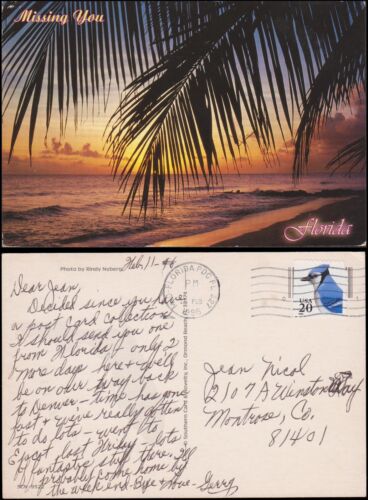 Missing You
Florida
Photo by Rindy Nyberg
Feb, 11-96
Dear Jean,
Decided since you have
a post card collection
I should send you one
from Florida - only 2
more days here & we'll
be on our way back
to Denver - time has gone
fast & we've really gotten
to do lots - went to
Epcot last Friday - lots
of fantastic stuff there. I'll
probably come home by
the week end. Bye & love - Gerry
FLORIDA PDC
PM
FEB
USA
20
Jean Nicol
2107 A Winston Way
Montrose, Co.
81401